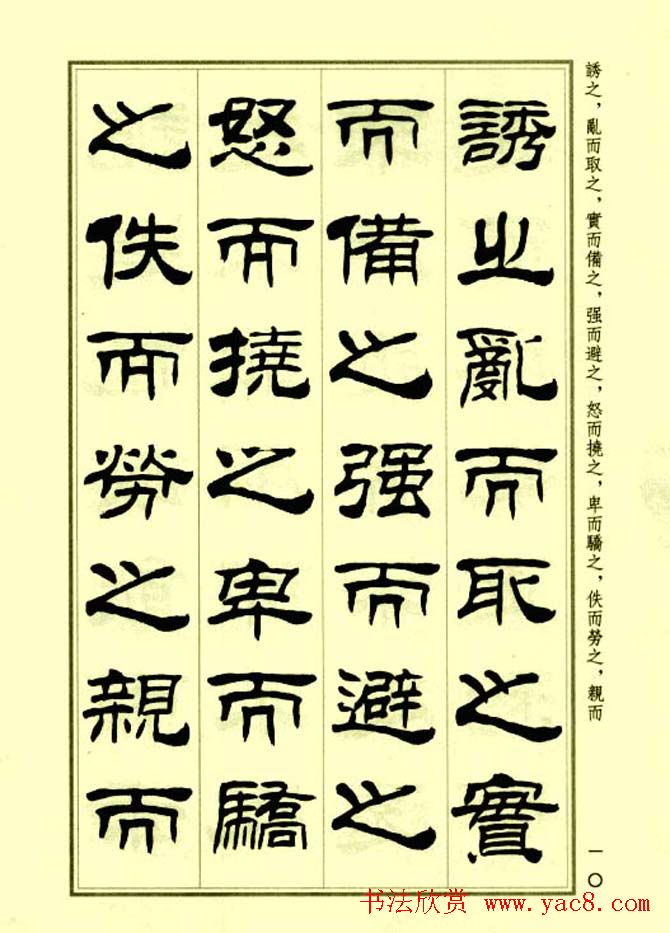 誘之亂而取之實
而備之强而避之
怒而撓之卑而驕
之佚而勞之親而
誘之，亂而取之，實而備之，强而避之，怒而撓之，卑而驕之，佚而勞之，親而
一〇
书法欣赏 www.yac8.com